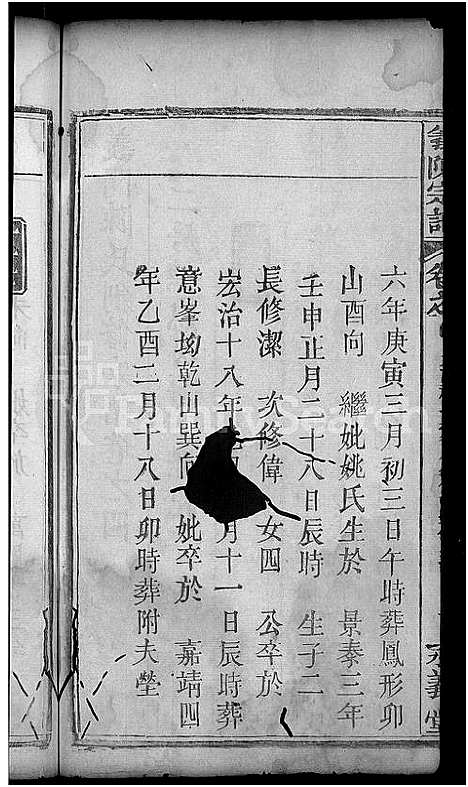 六年庚寅三月初三日午時葬鳳形卯
山酉向 繼妣姚氏生於 景泰三年
壬申正月二十八日辰時 生子二
長修潔 次修偉 女四 公卒於
宏治十八年 月十一日辰時葬
意峯坳乾山巽向 妣卒於 嘉靖四
年乙酉二月十八日卯時葬附夫塋
義陳宗譜
永義堂